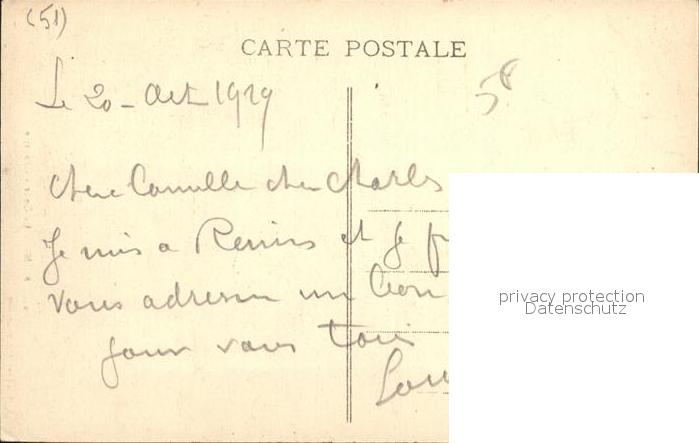 (51)
CARTE POSTALE
Le 20 - Oct 1929
58
chere Camille cher Charles
Je suis a Reims et je
vous adresse un bon
pour vous tous
privacy protection
Datenschutz